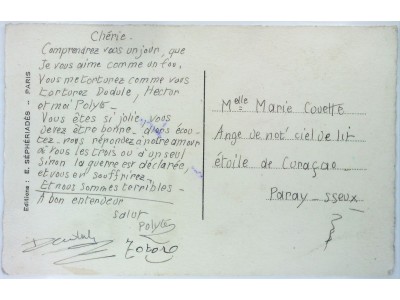 Chérie.
Comprendrez vous un jour, que
Je vous aime comme un fou,
Vous me torturez comme vous
torturez Dudule, Hector
et moi Polyte-
Vous êtes si jolie, vous
devez être bonne - alors écou-
tez. nous répondez a notre amour
à vous les trois ou d'un seul
Sinon la guerre est déclarée,
et vous en souffrirez.
Et nous sommes terribles.
A bon entendeur
salut
Polyte
Totore
Melle Marie Couette
Ange de not' ciel de lit
étoile de Curaçao
Paray - sseux
Editions : E. SÉPHÉRIADÈS - PARIS